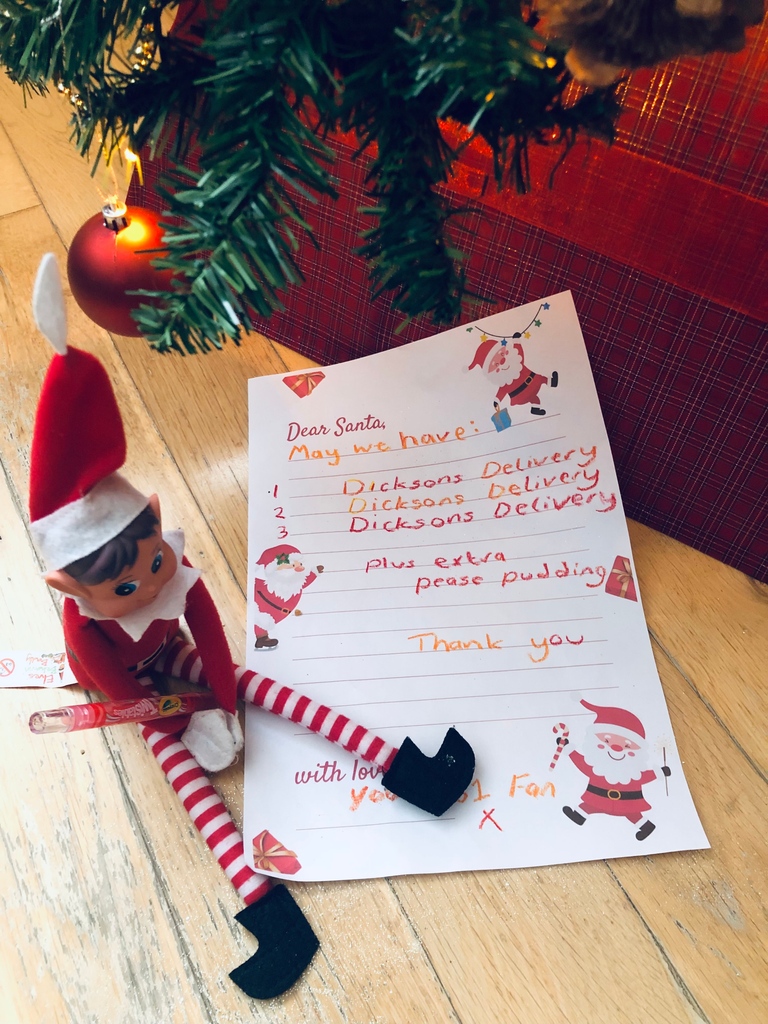 Dear Santa,
May we have:
1 Dicksons Delivery
2 Dicksons Delivery
3 Dicksons Delivery
plus extra
pease pudding
Thank you
with love
1 Fan
x